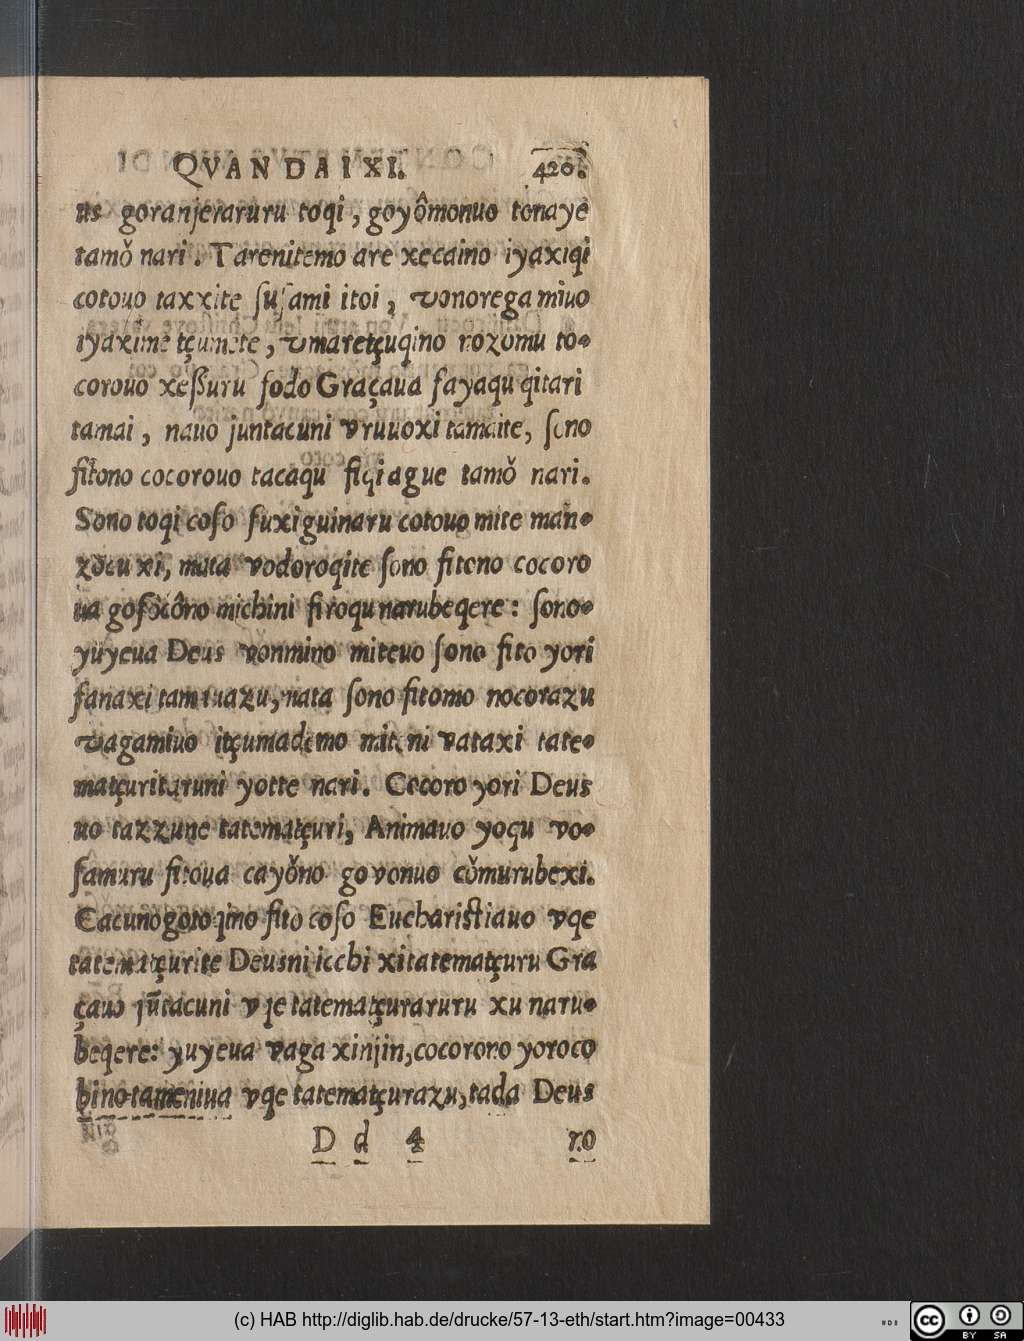 QVAN DAI XI. 420.
us goranjeraruru toqi, goyômonuo tonaye
tamǒ nari. Tarenitemo are xecaino iyaxiqi
cotouo taxxite ſuſami itoi, vonorega mìuo
iyaxime tçumete, vmaretçuqino nozomu to-
corouo xeſſuru ſodo Graçaua ſayaqu qitari
tamai, nauo juntacuni vruuoxi tamaite, ſono
fitono cocorouo tacaqu fiqiague tamǒ nari.
Sono toqi coſo fuxiguinaru cotouo mite man-
zocu xi, mata vodoroqite ſono fitono cocoro
ua goſocôno michini firoqu narubeqere: ſono-
yuyeua Deus vonmino miteuo ſono fito yori
fanaxi tamauazu, mata ſono fitomo nocorazu
vagamiuo itçumademo miteni vataxi tate-
matçuritaruni yotte nari. Cocoro yori Deus
uo tazzune tatematçuri, Animauo yoqu vo-
ſamuru fitoua cayǒno govonuo cǒmurubexi.
Cacunogotoqino fito coſo Euchariſtiauo vqe
tatematçurite Deusni icchi xitatematçuru Gra
çauo jũtacuni vqe tatematçuraruru xu naru-
beqere: yuyeua vaga xinjin, cocorono yoroco
bino tameniua vqe tatematçurazu, tada Deus
D d 4 no
(c) HAB http://diglib.hab.de/drucke/57-13-eth/start.htm?image=00433
cc BY SA